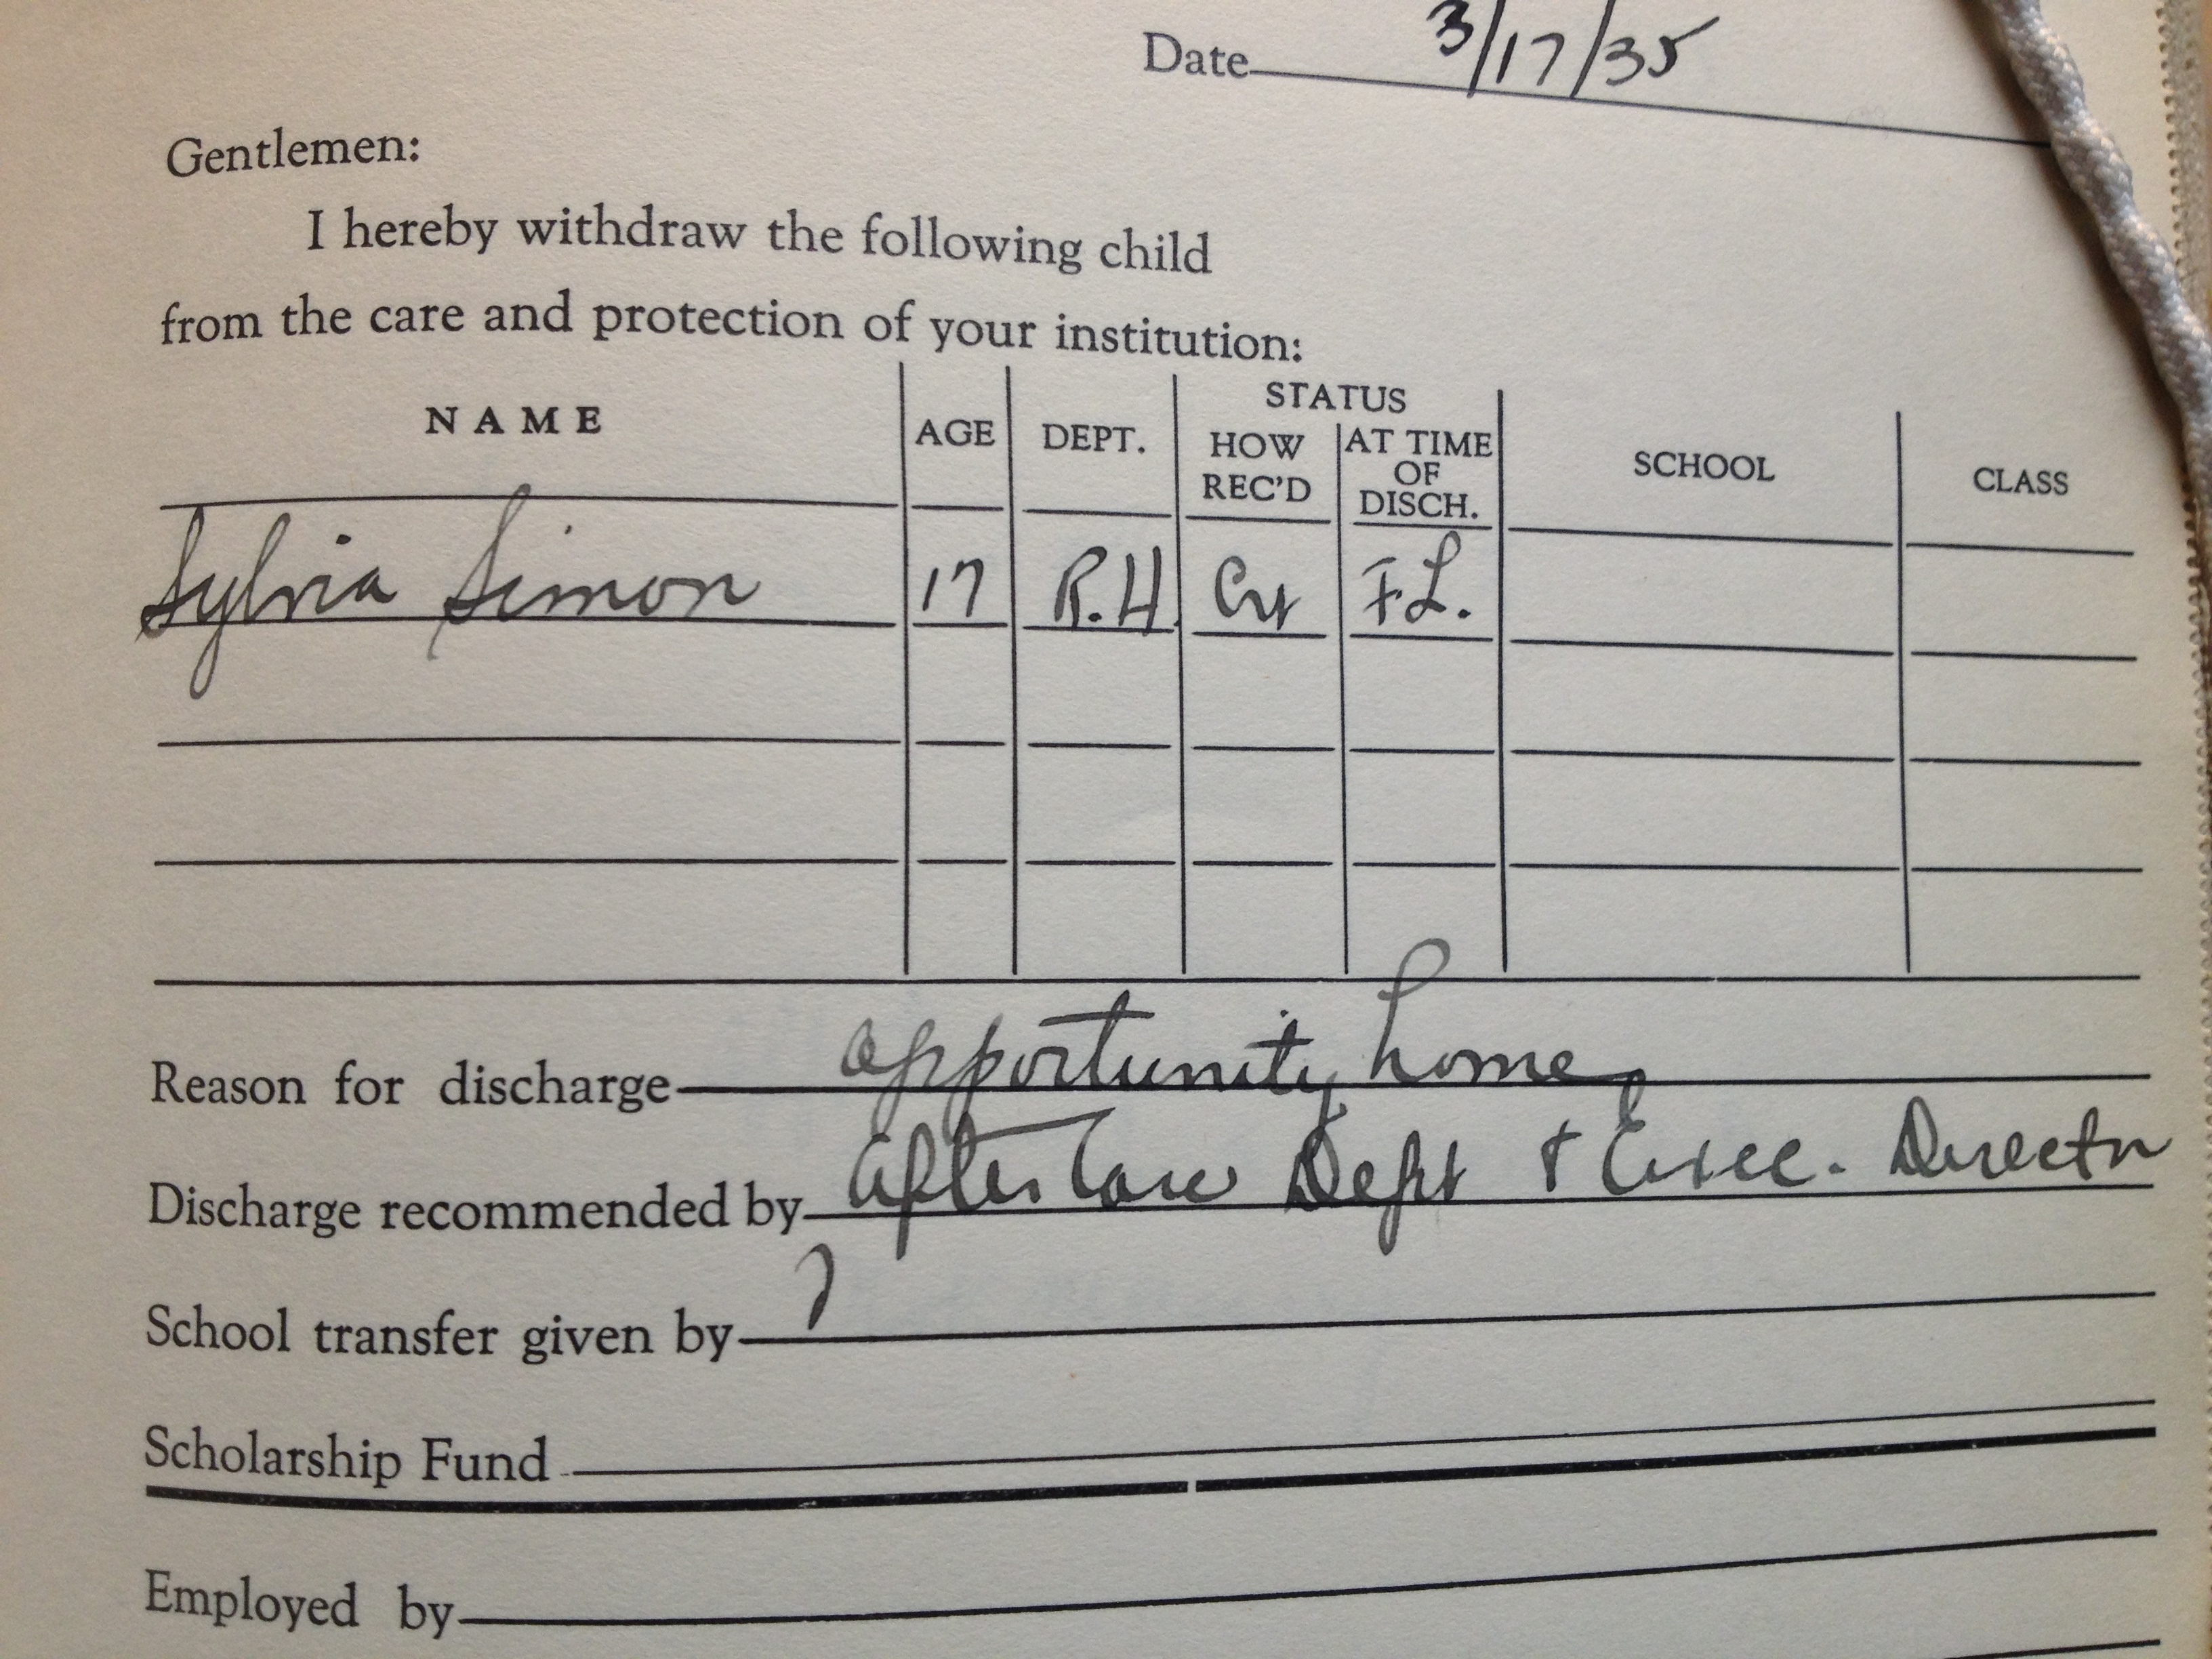 Date 3/17/35
Gentlemen:
I hereby withdraw the following child
from the care and protection of your institution:
STATUS
NAME AGE DEPT. HOW REC'D AT TIME OF DISCH. SCHOOL CLASS
Sylvia Simon 17 R.H. Crt F.L.
Reason for discharge opportunity home
Discharge recommended by After Care Dept & Exec. Director
School transfer given by
Scholarship Fund
Employed by